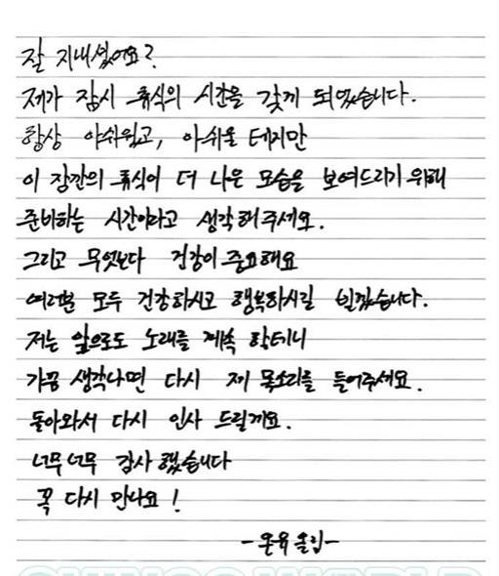 잘 지내셨어요?
제가 잠시 휴식의 시간을 갖게 되었습니다.
항상 아쉬웠고, 아쉬울 테지만
이 잠깐의 휴식이 더 나은 모습을 보여드리기 위해
준비하는 시간이라고 생각해주세요.
그리고 무엇보다 건강이 중요해요
여러분 모두 건강하시고 행복하시길 빌겠습니다.
저는 앞으로도 노래를 계속 할테니
가끔 생각나면 다시 제 목소리를 들어주세요.
돌아와서 다시 인사 드릴게요.
너무너무 감사했습니다
꼭 다시 만나요!
-온유 올림-